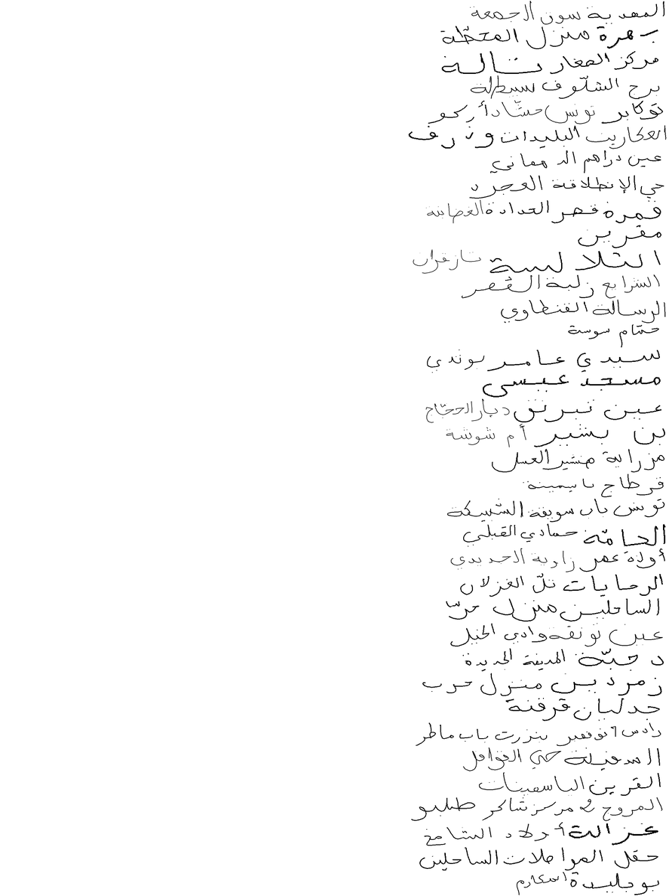 المهدية سوق الجمعة
بهرة منزل المحطّة
مركز الصغار تالة
برج الشلّوف سبيطلة
توكابر تونس حشّاد أركو
العكاريت البليدات وذرف
عين دراهم الدهماني
حي الإنطلاقة المجرد
قمرة قصر الحدادة الغضابنة
مقرين
الثلاليسة تازغران
الشرايع زلبة القصر
الرسالة القنطاوي
حمّام سوسة
سيدي عامر بوندي
مسجد عيسى
عين نبرنق ديار الحجّاج
بن بشير أم شوشة
مزراية هنشير العسل
قرطاج ياسمينة
تونس باب سويقة الشبيكة
العيامّة حمادي القبلي
أولاد عمر زاوية الحديدي
الرحايات تلّ الغزلان
الساحلين منزل حرّ
عين تونقة وادي الخيل
دجبّة المدينة الجديدة
زمردين منزل حرب
حدليان قرقنة
رادس 7 نوفمبر بنزرت باب ماطر
السعيلة حي القوافل
القرين الياسمينات
المروج 5 مركز شاكر طلبو
غزالة أولاد الشامخ
حقل المواصلات الساحلين
بوجليدة